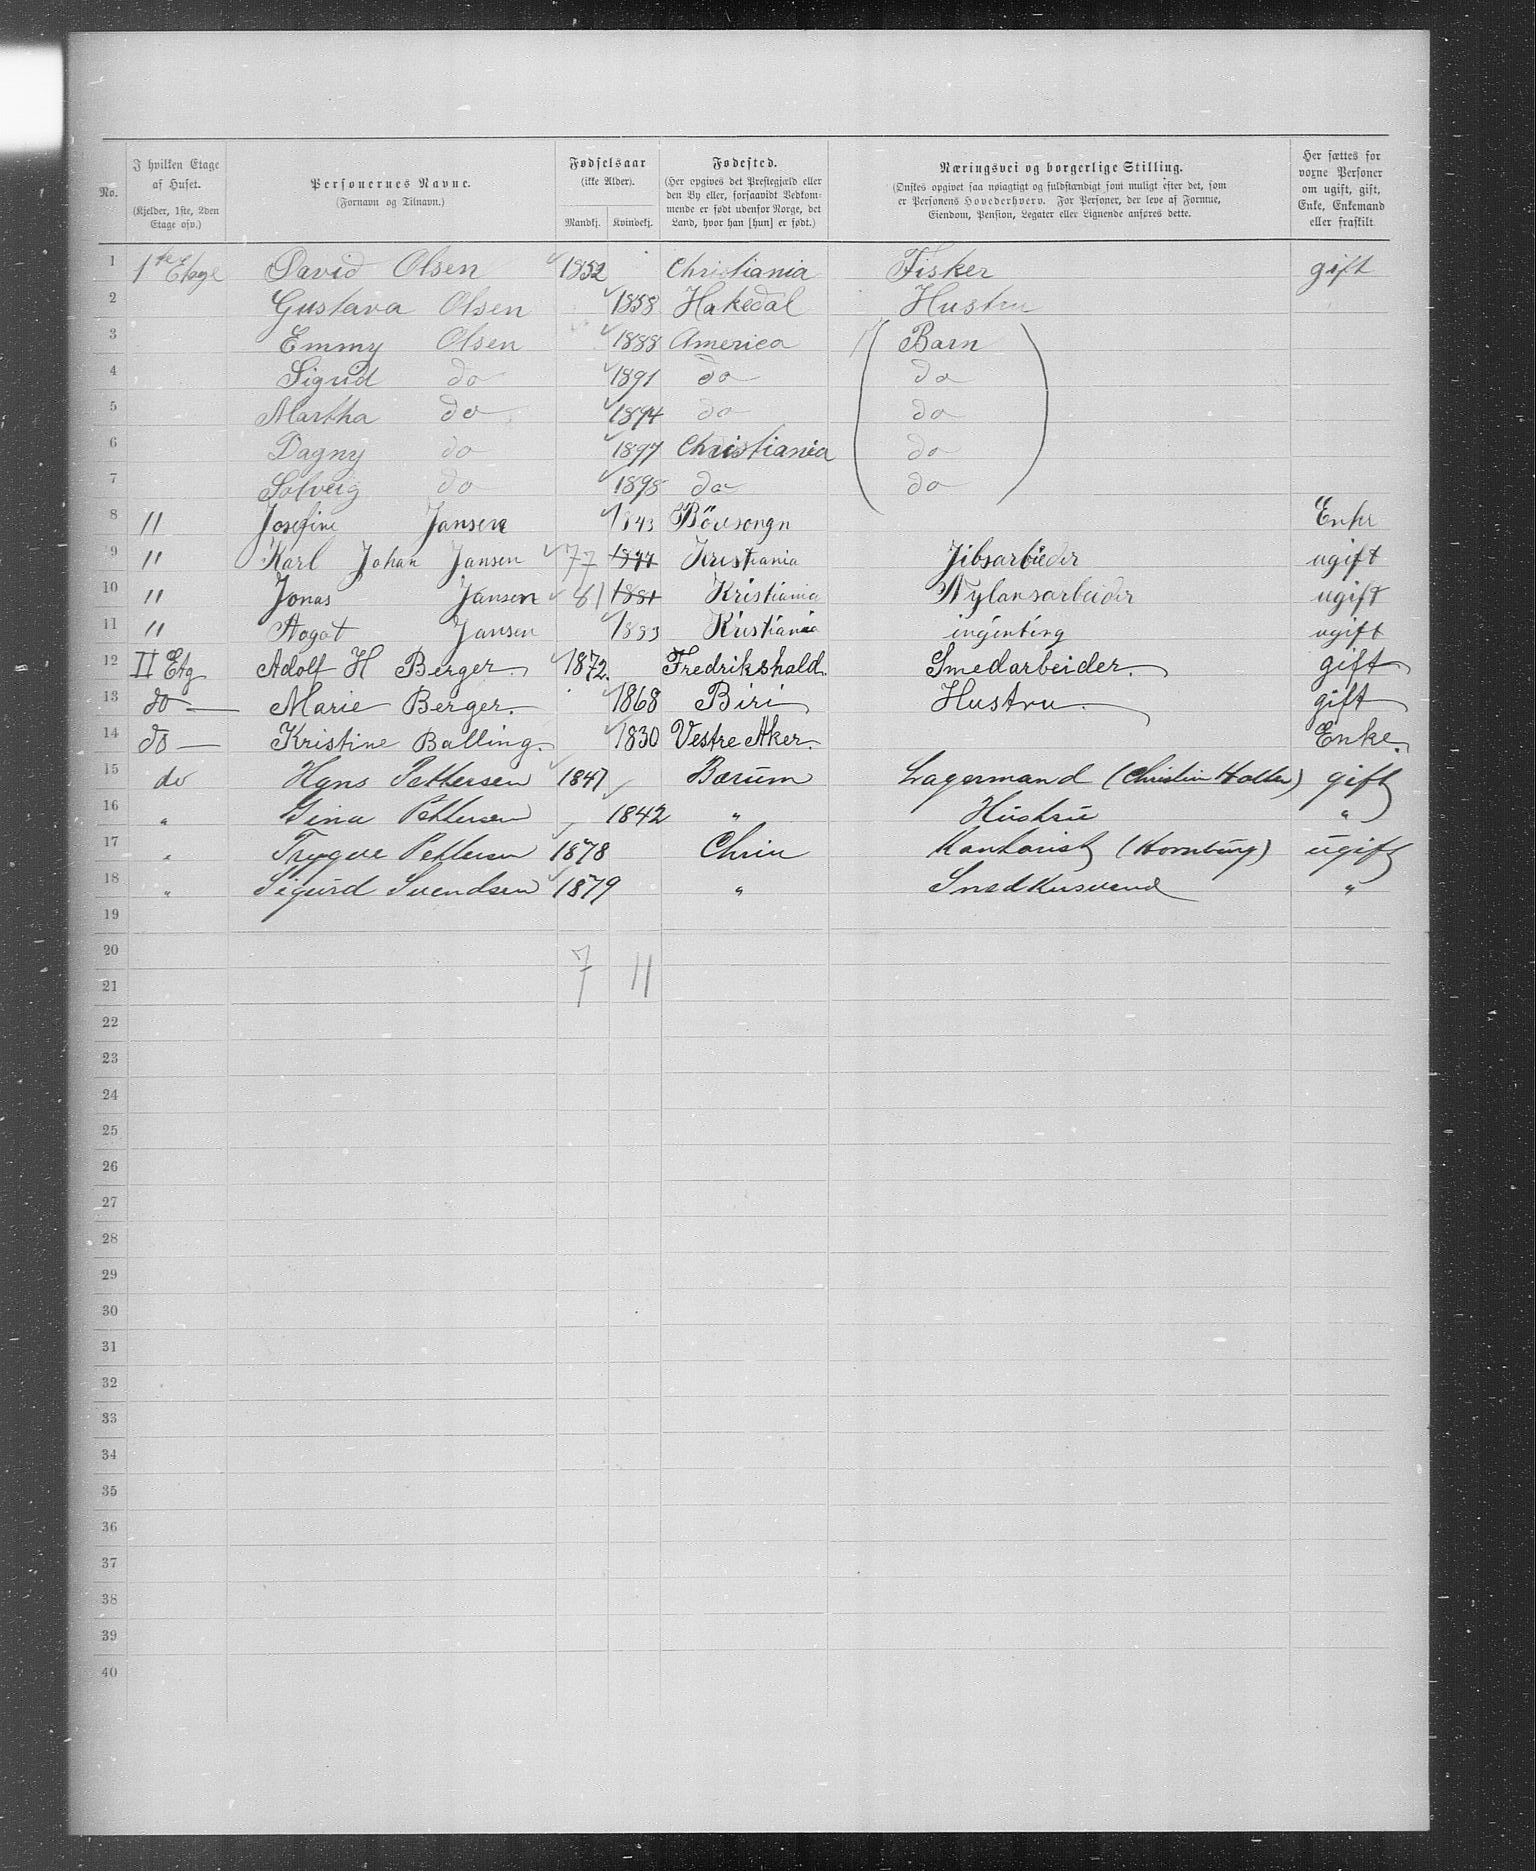 No.
I hvilken Etage af Huset. (Kjelder, 1ste, 2den Etage osv.)
Personernes Navne. (Fornavn og Tilnavn.)
Fødselsaar (ikke Alder). Mandkj. Kvindekj.
Fødested. (Her opgives det Prestegjæld eller den By eller, forsaavidt Vedkommende er født udenfor Norge, det Land, hvor han [hun] er født.)
Næringsvei og borgerlige Stilling. (Ønskes opgivet saa nøiagtigt og fuldstændigt som muligt efter det, som er Personens Hovederhverv. For Personer, der leve af Formue, Eiendom, Pension, Legater eller Lignende anføres dette.)
Her sættes for voxne Personer om ugift, gift, Enke, Enkemand eller fraskilt
1 1ste Etage David Olsen 1852 Christiania Fisker gift
2 Gustava Olsen 1858 Hakedal Hustru
3 Emmy Olsen 1888 America ( Barn )
4 Sigrid do 1891 do do
5 Martha do 1894 do do
6 Dagny do 1897 Christiania do
7 Solveig do 1898 do do
8 " Josefine Jansen 1843 Enke
9 " Karl Johan Jansen 77 1877 Kristiania Jibsarbeider ugift
10 " Jonas Jansen 81 1881 Kristiania Nylansarbeider ugift
11 " Aagot Jansen 1883 Kristiania ingenting ugift
12 II Etg Adolf H Berger. 1872. Fredrikshald. Smedarbeider. gift
13 do — Marie Berger. 1868 Biri Hustru. gift
14 do — Kristine Balling. 1830 Vestre Aker. Enke.
15 do Hans Pettersen 1847 Bærum Lagermand (Christian Holter) gift
16 " Gina Pettersen 1842 " Hustru "
17 " Trygve Pettersen 1878 Chria Kontorist (Hornburg) ugift
18 " Sigurd Svendsen 1879 " Snedkersvend "
19
20
7 11
21
22
23
24
25
26
27
28
29
30
31
32
33
34
35
36
37
38
39
40